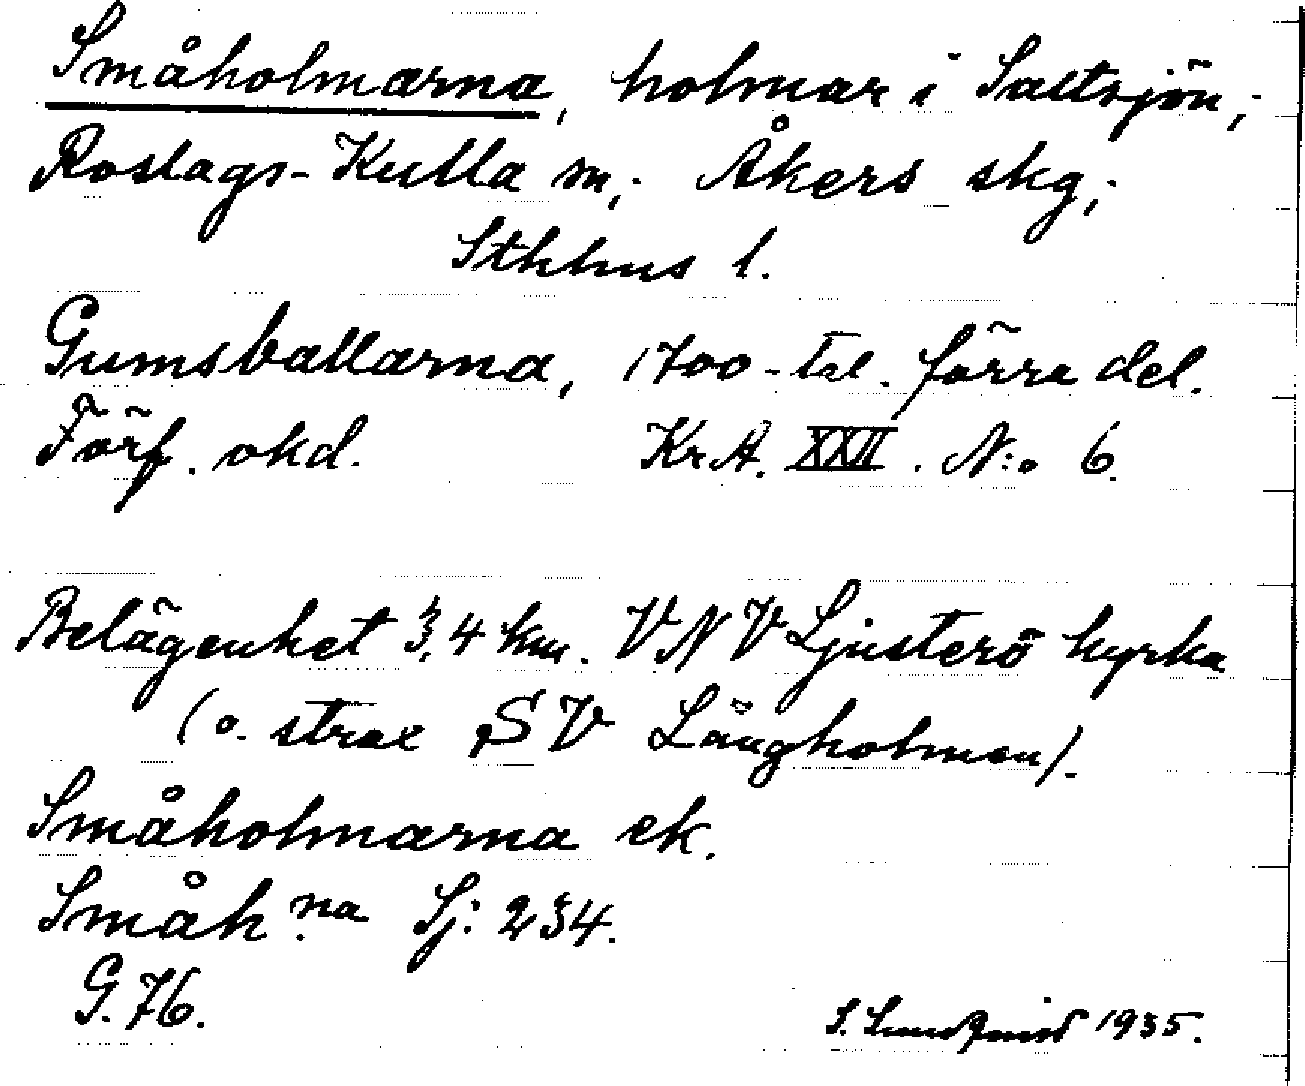 Småholmarna, holmar i Saltsjön,
Roslags-Kulla sn, Åkers skg,
Sthlms l.
Gumsballarna, 1700-tal. förra del.
Förf. okd. KrA. XXII. N:o 6.
Belägenhet 3,4 km. VNV Ljusterö kyrka
(o. strax SV Långholmen).
Småholmarna ek.
Småh:na Sj: 234.
G. 76.
S. Lundquist 1935.